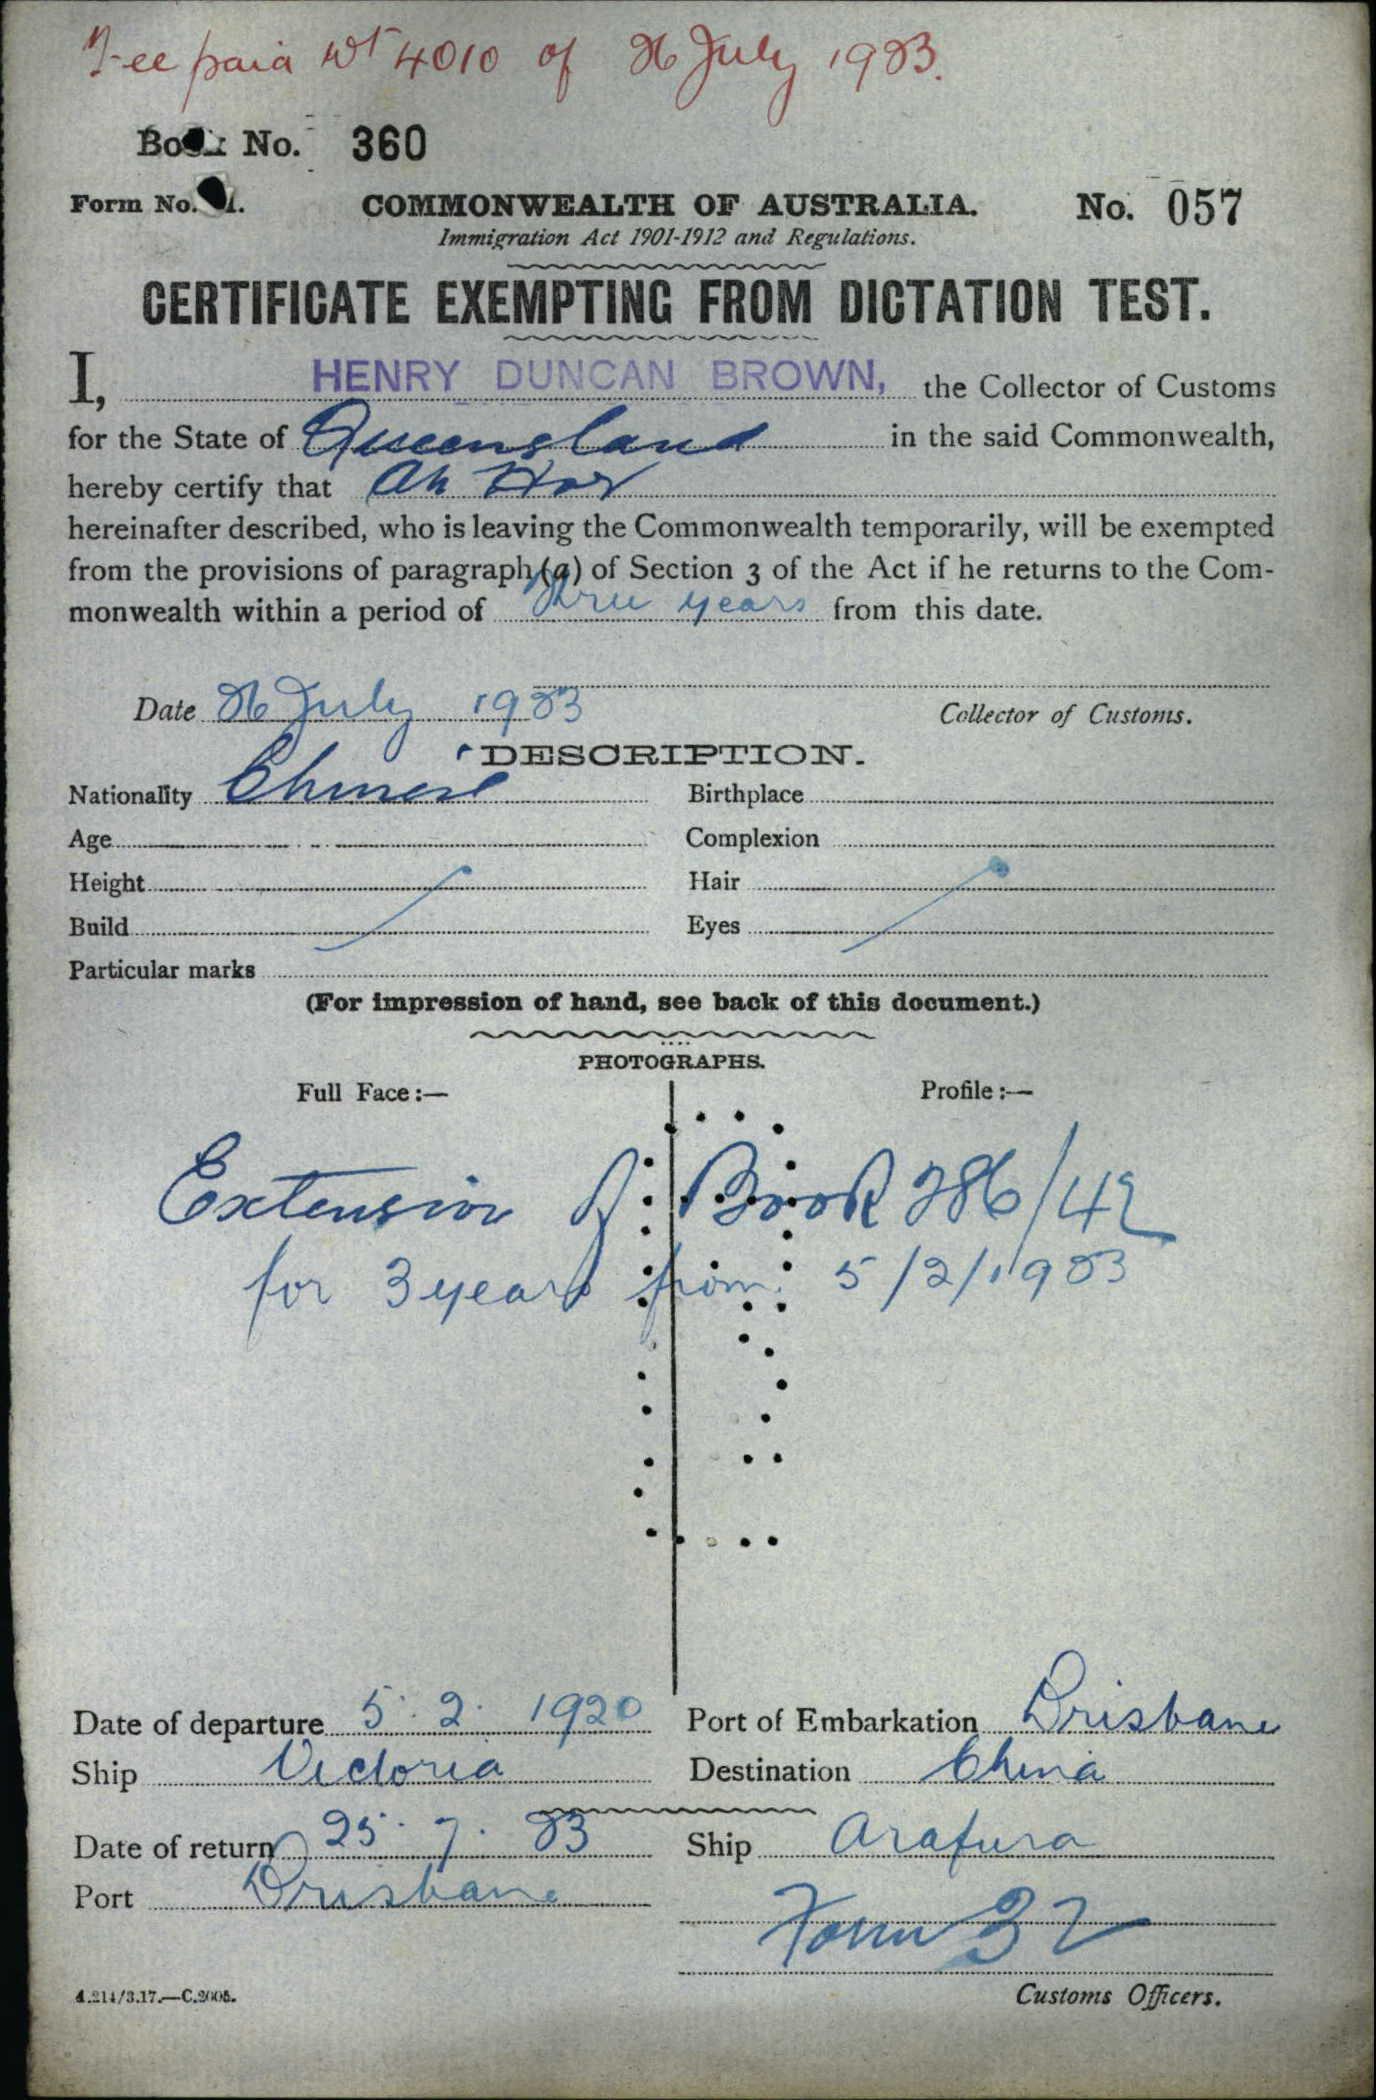 Fee paid 4010 of 26 July 1923.
Book No. 360
Form No. 21. COMMONWEALTH OF AUSTRALIA. No. 057
Immigration Act 1901-1912 and Regulations.
CERTIFICATE EXEMPTING FROM DICTATION TEST.
I, HENRY DUNCAN BROWN, the Collector of Customs
for the State of Queensland in the said Commonwealth,
hereby certify that Ah Hoy
hereinafter described, who is leaving the Commonwealth temporarily, will be exempted
from the provisions of paragraph (a) of Section 3 of the Act if he returns to the Com-
monwealth within a period of three years from this date.
Date 26 July 1923 Collector of Customs.
DESCRIPTION.
Nationality Chinese Birthplace
Age Complexion
Height Hair
Build Eyes
Particular marks
(For impression of hand, see back of this document.)
PHOTOGRAPHS.
Full Face:— Profile:—
Extension of Book 286/42
for 3 years from 5/2/1923
Date of departure 5. 2. 1920 Port of Embarkation Brisbane
Ship Victoria Destination China
Date of return 25. 7. 23 Ship Arafura
Port Brisbane
Form 32
4.214/3.17.—C.2005. Customs Officers.